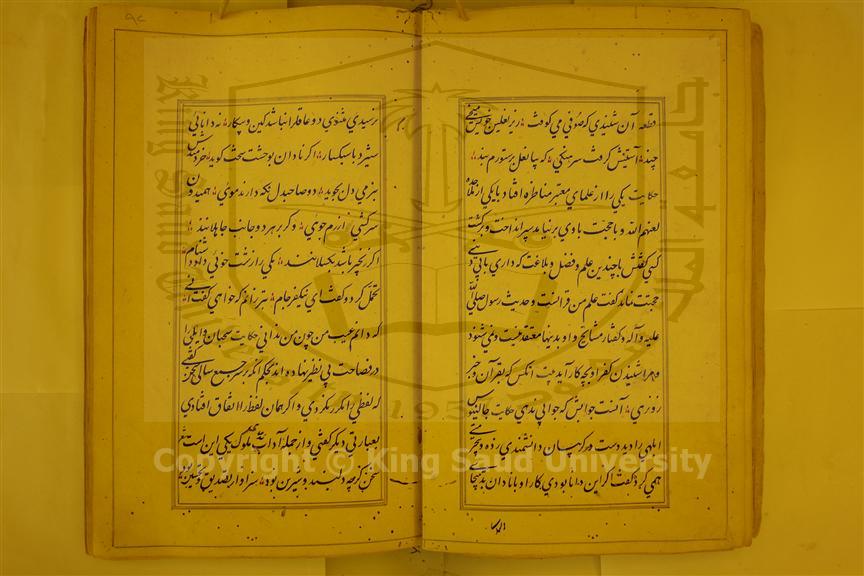 قطعه آن شنیدی که صوفی می کوفت زیر نعلین خویش میخی
چند آستینش گرفت سرهنگی که بیا نعل بر ستورم بند
حکایت یکی را از علمای معتبر مناظره افتاد با یکی از ملاحده
لعنهم الله و با حجت باوی بر نیامد سپر انداخت و برگشت
کسی گفتش با چندین علم و فضل و بلاغت که داری با بی دینی
حجتت نماند گفت علم من قرانست و حدیث رسول صلی الله
علیه و آله و گفتار مشایخ و او بدینها معتقد نیست و نمی شنود
و مرا شنیدن کفر او بچه کار آید بیت انکس که بقران و خبر
زو نرهی آنست جوابش که جوابی ندهی حکایت جالینوس
ابلهی را دید دست در گریبان دانشمندی زده و بیحرمتی
همی کرد گفت اگر این دانا بودی کار او با نادان بدینجا
نرسیدی مثنوی دو عاقل را نباشد کین و پیکار نه دانایی
ستیزد با سبکسار اگر نادان بوحشت سخت گوید خردمندش
بنرمی دل بجوید دو صاحبدل نگه دارند مویی همیدون
سرکشی ازرم جویی و گر بر هر دو جانب جاهلانند
اگر زنجیر باشد بگسلانند یکی را زشت خویی داد دشنام
تحمل کرد و گفت ای نیکفرجام بتر زانم که خواهی گفت آنی
که دانم عیب من چون من ندانی حکایت سحبان وایل را
در فصاحت بی نظیر نهاده اند بحکم آنکه بر سر جمع سالی سخن گفتی
که لفظی را مکرر نکردی و اگر همان لفظ را اتفاق افتادی
بعبارتی دیگر گفتی و از جمله آداب ندماء ملوک یکی این است شعر
سخن گرچه دلبند و شیرین بود سزاوار تصدیق و تحسین بود